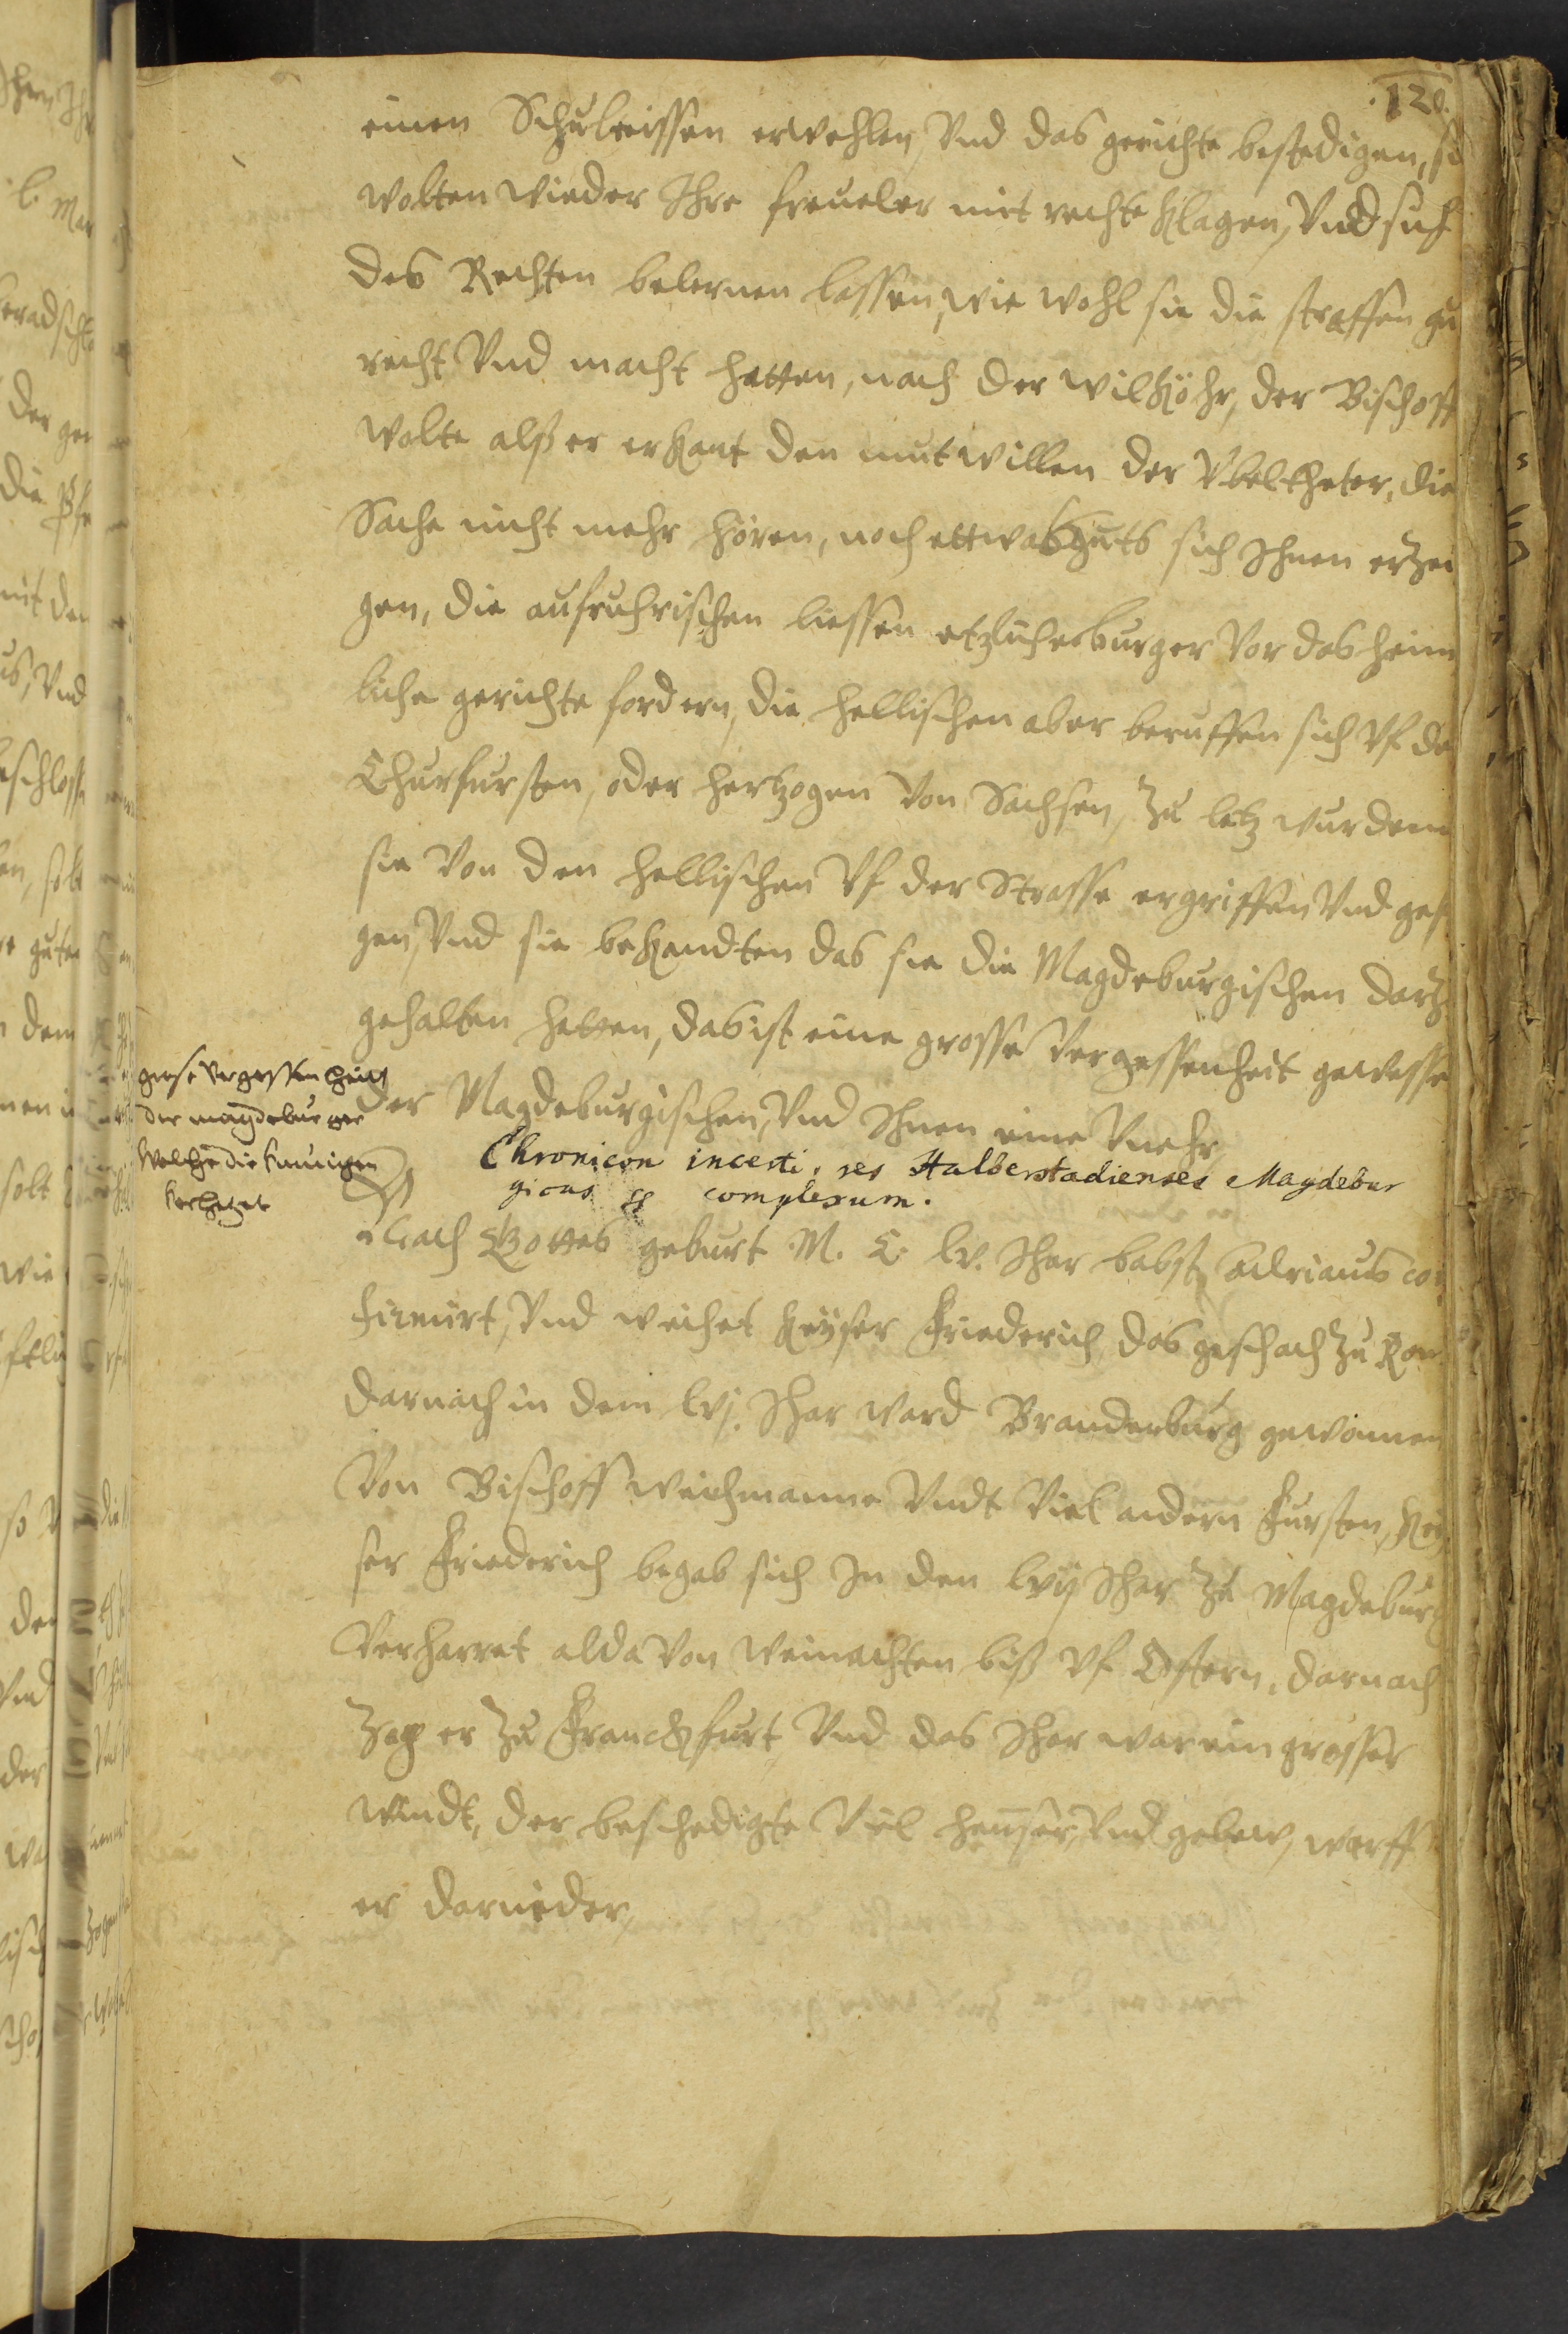 120.
einen Schulteissen erwehlen, Vnd das gerichte bestedigen, si
wolten wieder Ihre freueler mit recht klagen, Vnd sich
des Rechten belernen lassen, wie wohl sie die straffen zu
recht Vnd macht hatten, nach der wilköhr, der Bischoff
wolte alß er erkant den mutwillen der Vbeltheter, die
Sache nicht mehr hören, noch ettwas guts sich Ihnen erzei
gen, die aufruhrischen liessen etzliche burger Vor das heim
liche gerichte fordern, die hellischen aber beruffen sich Vf de
Churfursten, oder hertzogen Von Sachsen, Zu letz wurdenn
sie Von den hellischen Vf der Strasse ergriffen Vnd gef
gen, Vnd sie bekandten das sie die Magdeburgischen dartz
gehalten hetten, das ist eine grosse Vergessenheit gewesse
der Magdeburgischen, Vnd Ihnen eine Vnehr,
grose Vergessenheit
der magdeburger
Welche die
Chronicon incerti, res Halberstadienses Magdebur
gicas complexum.
Nach Gottes geburt M. C. lv. Ihar babst Adrianus con
firmirt, Vnd weihet Keyser Friederich das geschach Zu Rom
darnach in dem lvj. Ihar ward Brandenburg gewonnen
Von Bischoff weichmanne Vndt Viel andern Fursten, Key
ser Friederich begab sich In den lvij Ihar Zu Magdeburg
Verharret alda Von Weinachten biß Vf Ostern, darnach
Zog er Zu Franckfurt, Vnd das Ihar war ein grosser
windt, der beschedigte Viel heuser, Vnd gebew, warff
er darnieder,